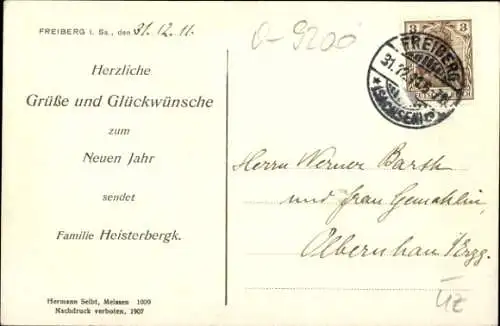 FREIBERG i. Sa., den 31.12.11.
Herzliche
Grüße und Glückwünsche
zum
Neuen Jahr
sendet
Familie Heisterbergk.
Hermann Seibt, Meissen 1009
Nachdruck verboten, 1907
0-9200
3
FREIBERG
31.12.
(SACHSEN)
Herrn Werner Barth
und Frau Gemahlin,
Olbernhau i/Erzg.